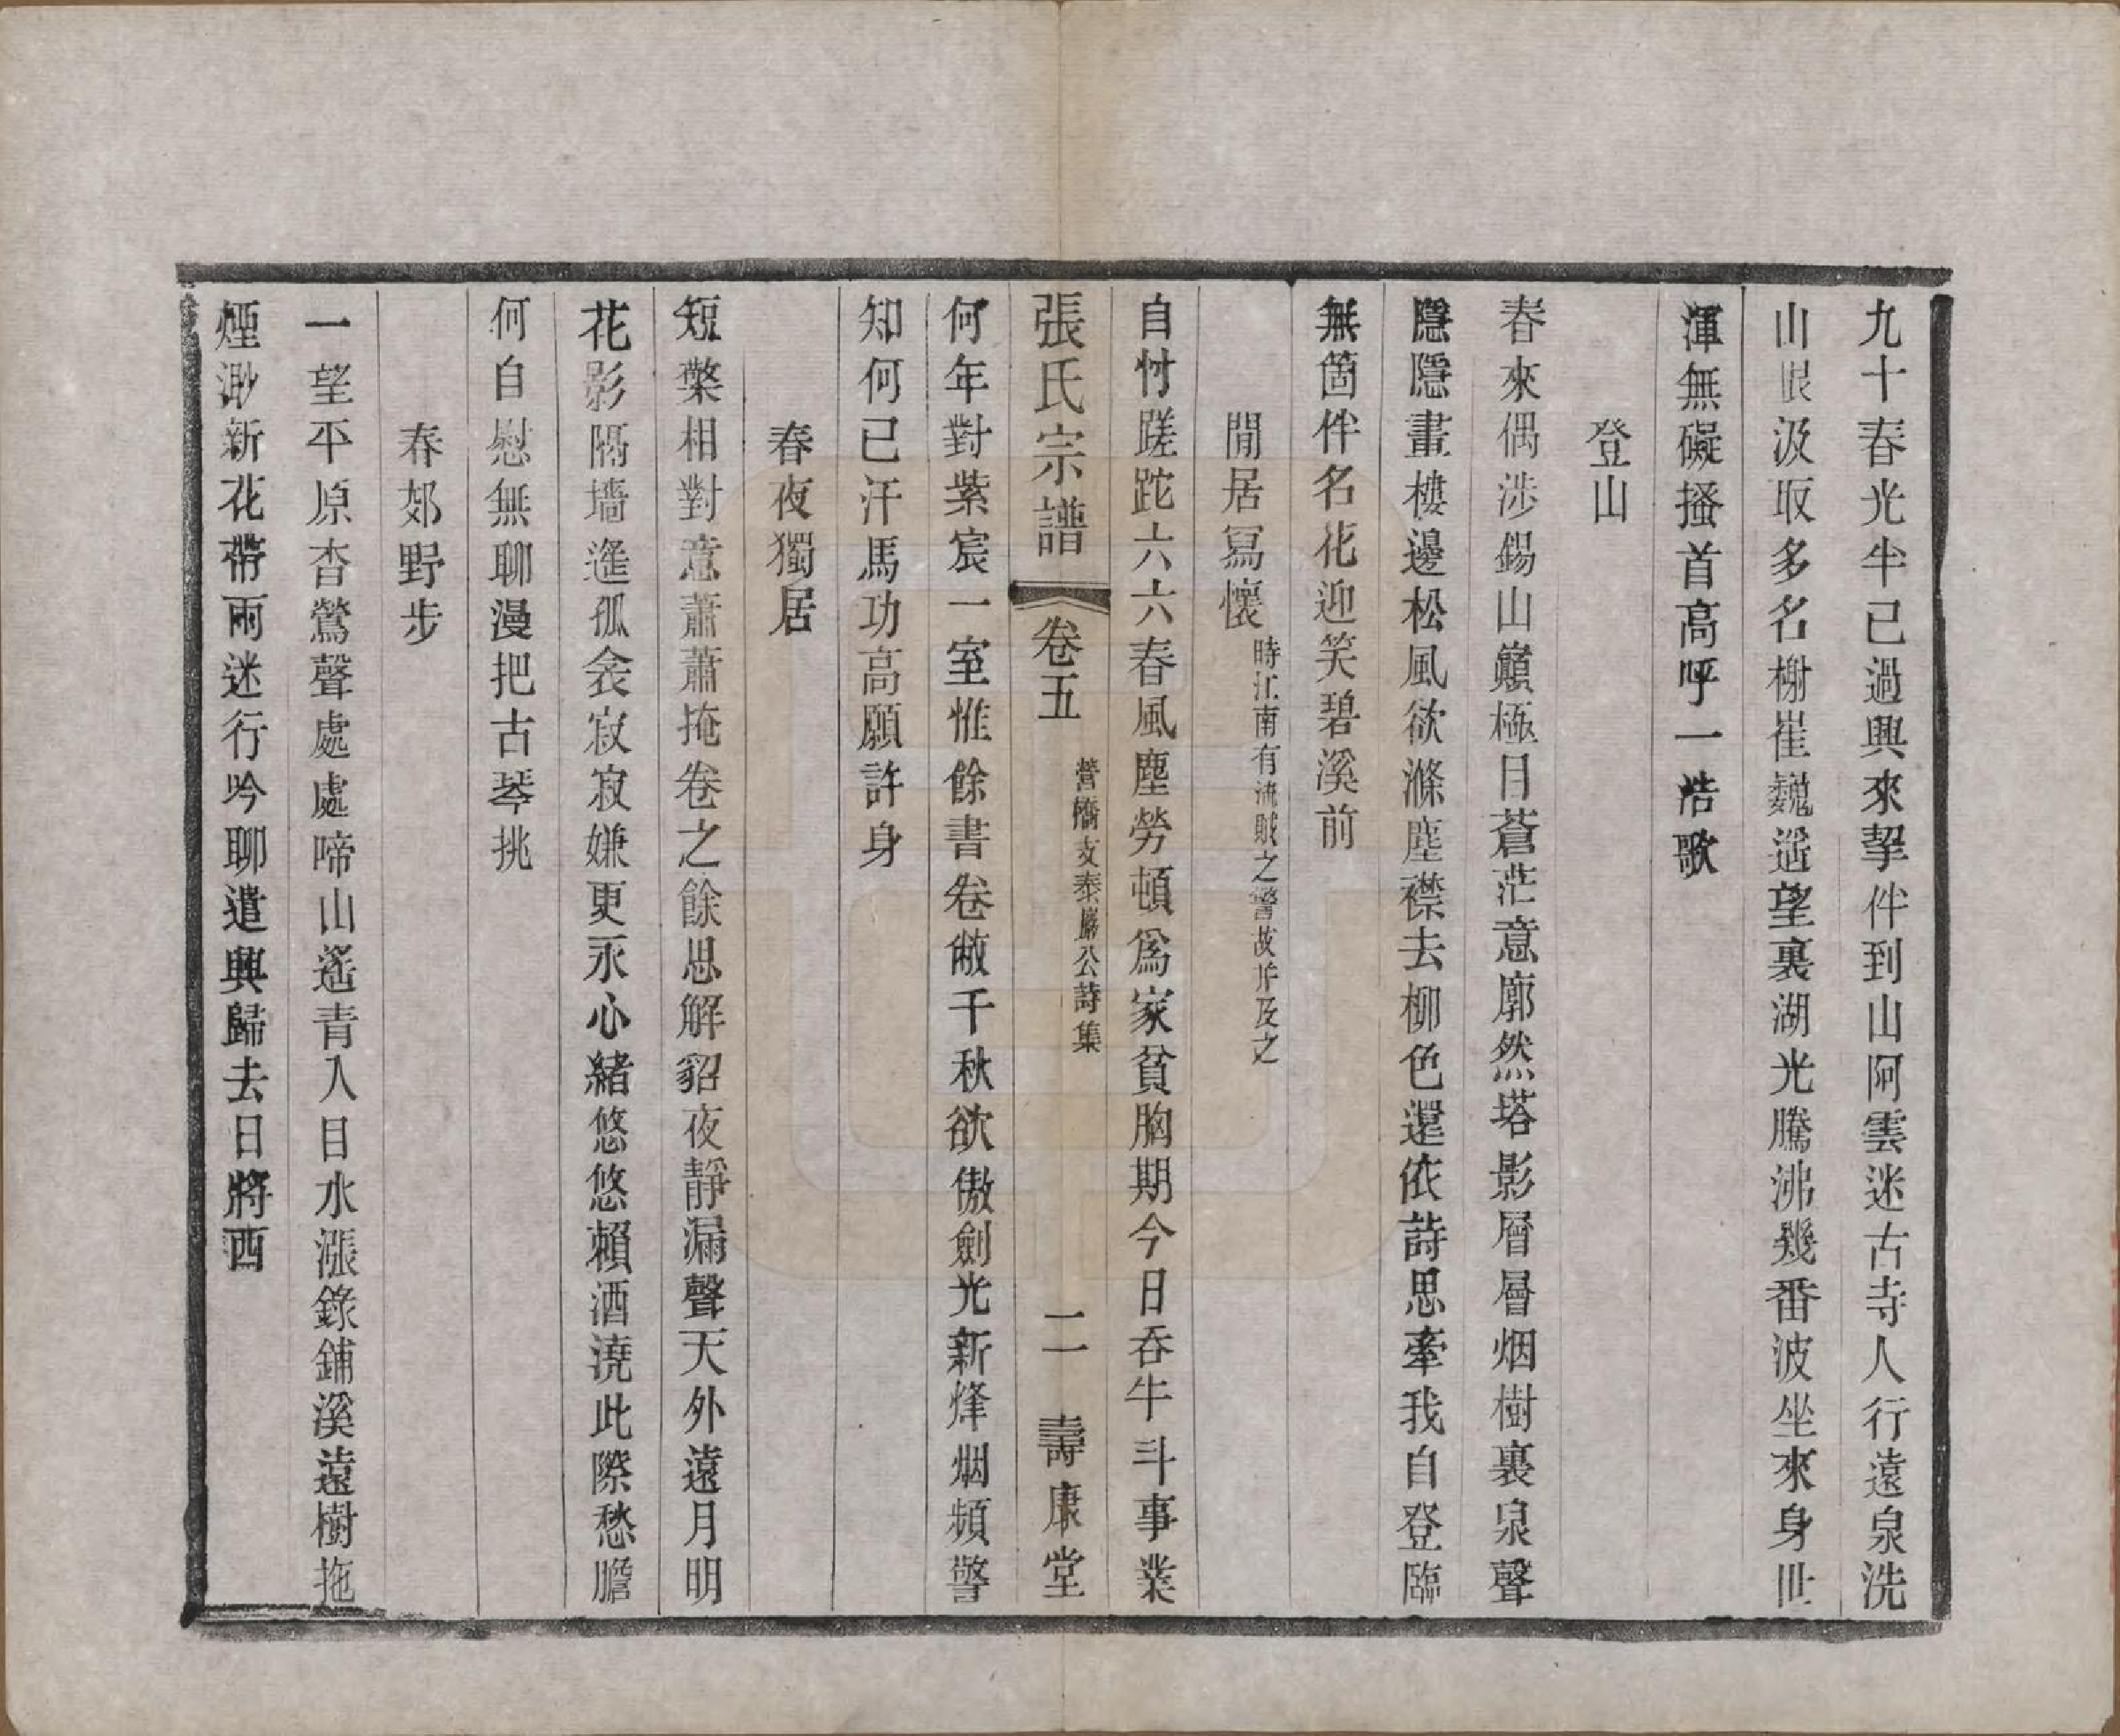 九十春光半已過興來挈伴到山阿雲迷古寺人行遠泉洗
山眼汲取多名榭崔巍遥望裏湖光騰沸幾番波坐來身世
渾無礙搔首高呼一浩歌
登山
春來偶涉錫山巔極目蒼茫意廓然塔影層層烟樹裏泉聲
隱隱畫樓邊松風欲滌塵襟去柳色還依詩思牽我自登臨
無箇伴名花迎笑碧溪前
閒居寫懷時江南有流賊之警故并及之
自忖蹉跎六六春風塵勞頓爲家貧胸期今日吞牛斗事業
張氏宗譜 卷五 營橋支泰巖公詩集 二 壽康堂
何年對紫宸一室惟餘書卷敝千秋欲傲劍光新烽烟頻警
知何已汗馬功高願許身
春夜獨居
短檠相對意蕭蕭掩卷之餘思解貂夜靜漏聲天外遠月明
花影隔墻遥孤衾寂寂嫌更永心緒悠悠賴酒澆此際愁膽
何自慰無聊漫把古琴挑
春郊野步
一望平原杳鶯聲處處啼山遙青入目水漲錄鋪溪遠樹拖
煙渺新花帶雨迷行吟聊遣興歸去日將西